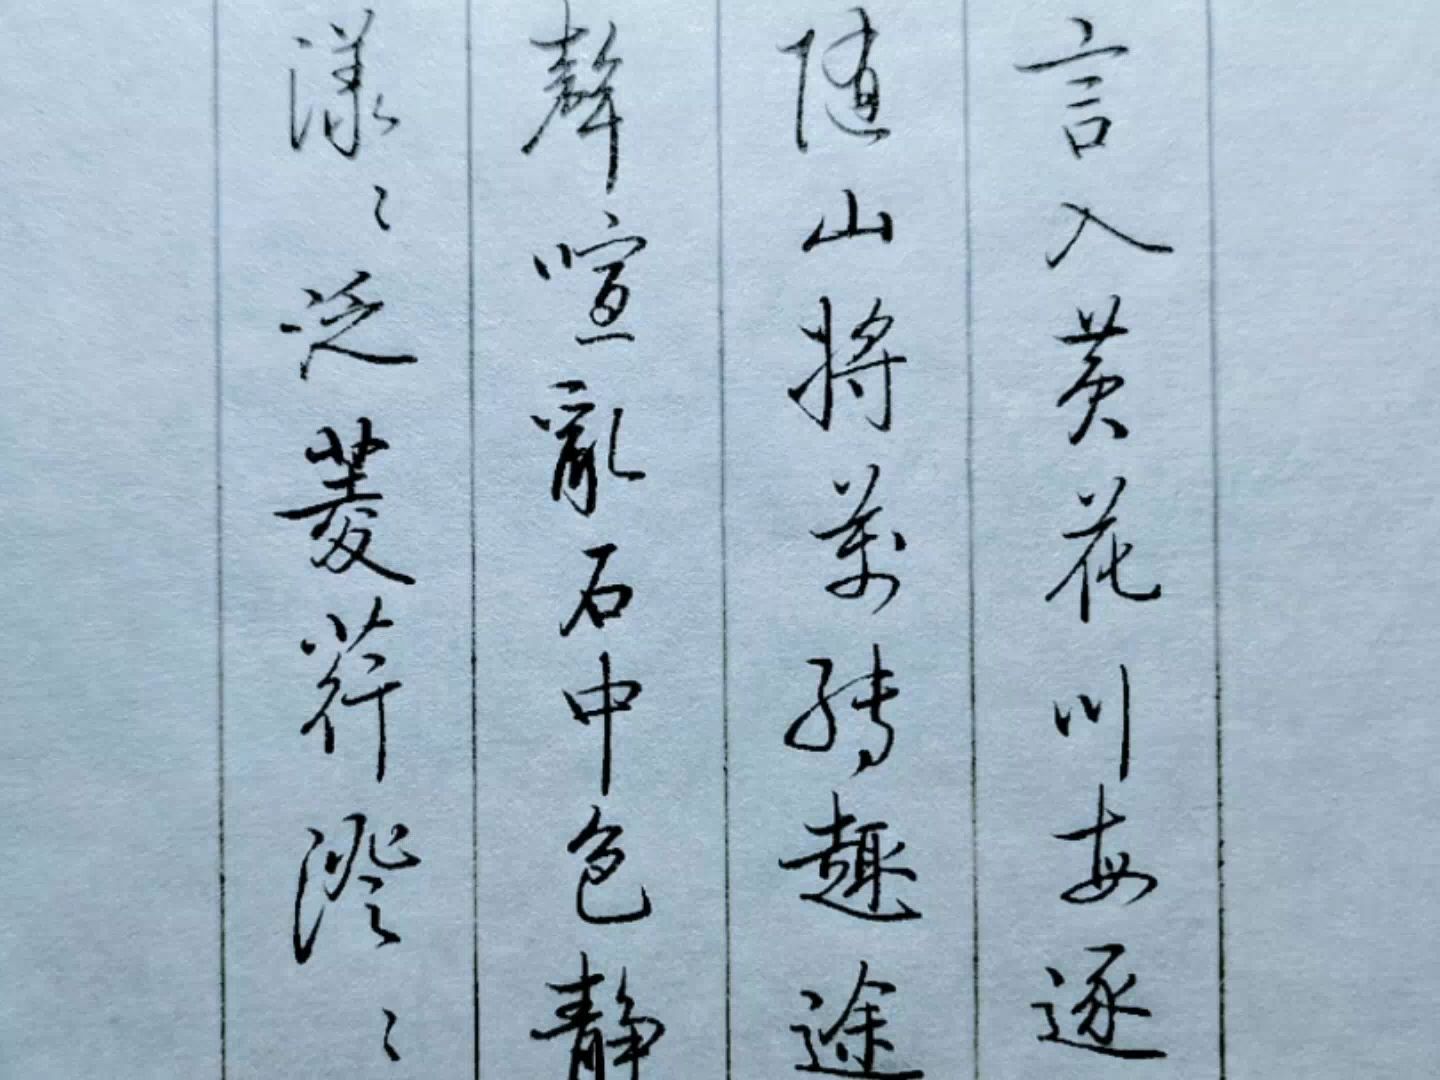 言入黄花川每逐
随山将萬转趣途
聲喧亂石中色静
漾々泛菱荇澄々